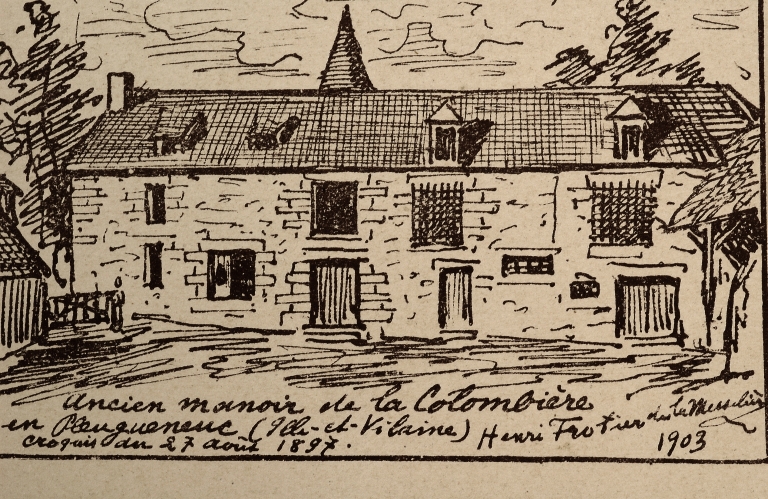 Ancien manoir de la Colombière
en Pleugueneuc (Ille-et-Vilaine)
croquis du 27 août 1897.
Henri Frotier de la Messelière
1903